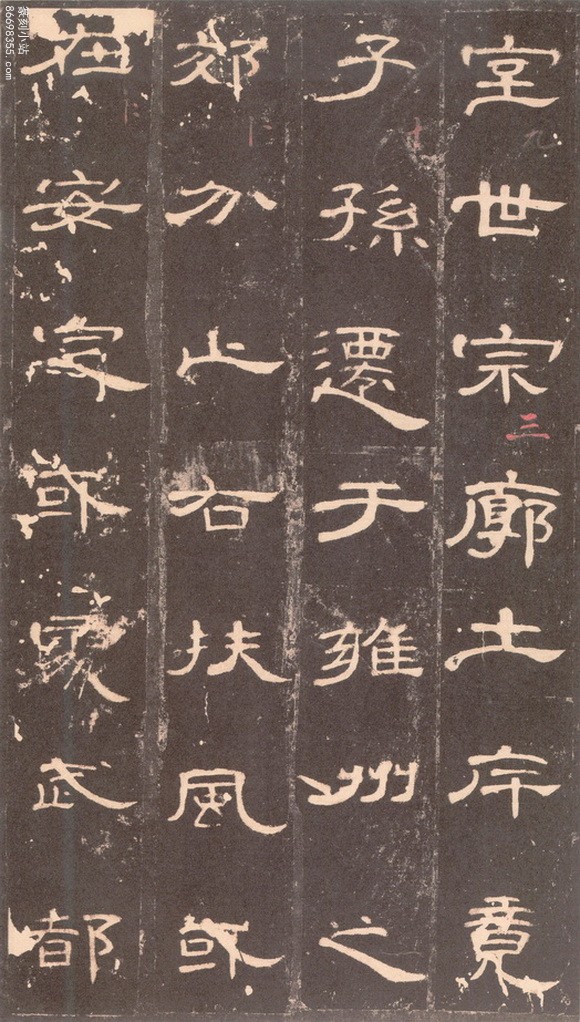 室世宗廓土斥竟
子孫遷于雍州之
郊分止右扶風或
在安定或處武都
九
三
十
篆刻小站
86698355.com